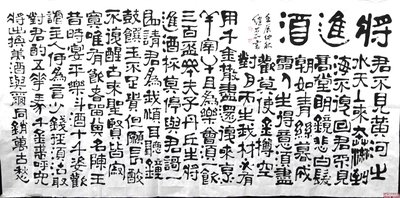 將進酒
君不見黃河之
水天上來奔流到
海不復回君不見
高堂明鏡悲白髮
朝如青絲暮成
雪人生得意須盡
歡莫使金樽空
對月天生我材必有
用千金散盡還復來烹
羊宰牛且爲樂會須一飲
三百盃岑夫子丹丘生將
進酒杯莫停與君謌一
曲請君爲我傾耳聽鐘
鼓饌玉不足貴但願長醉
不復醒古來聖賢皆寂
寞唯有飲者留其名陳王
昔時宴平樂斗酒十千恣歡
謔主人何爲言少錢徑須沽取
對君酌五花馬千金裘呼兒
將出換美酒與爾同銷萬古愁